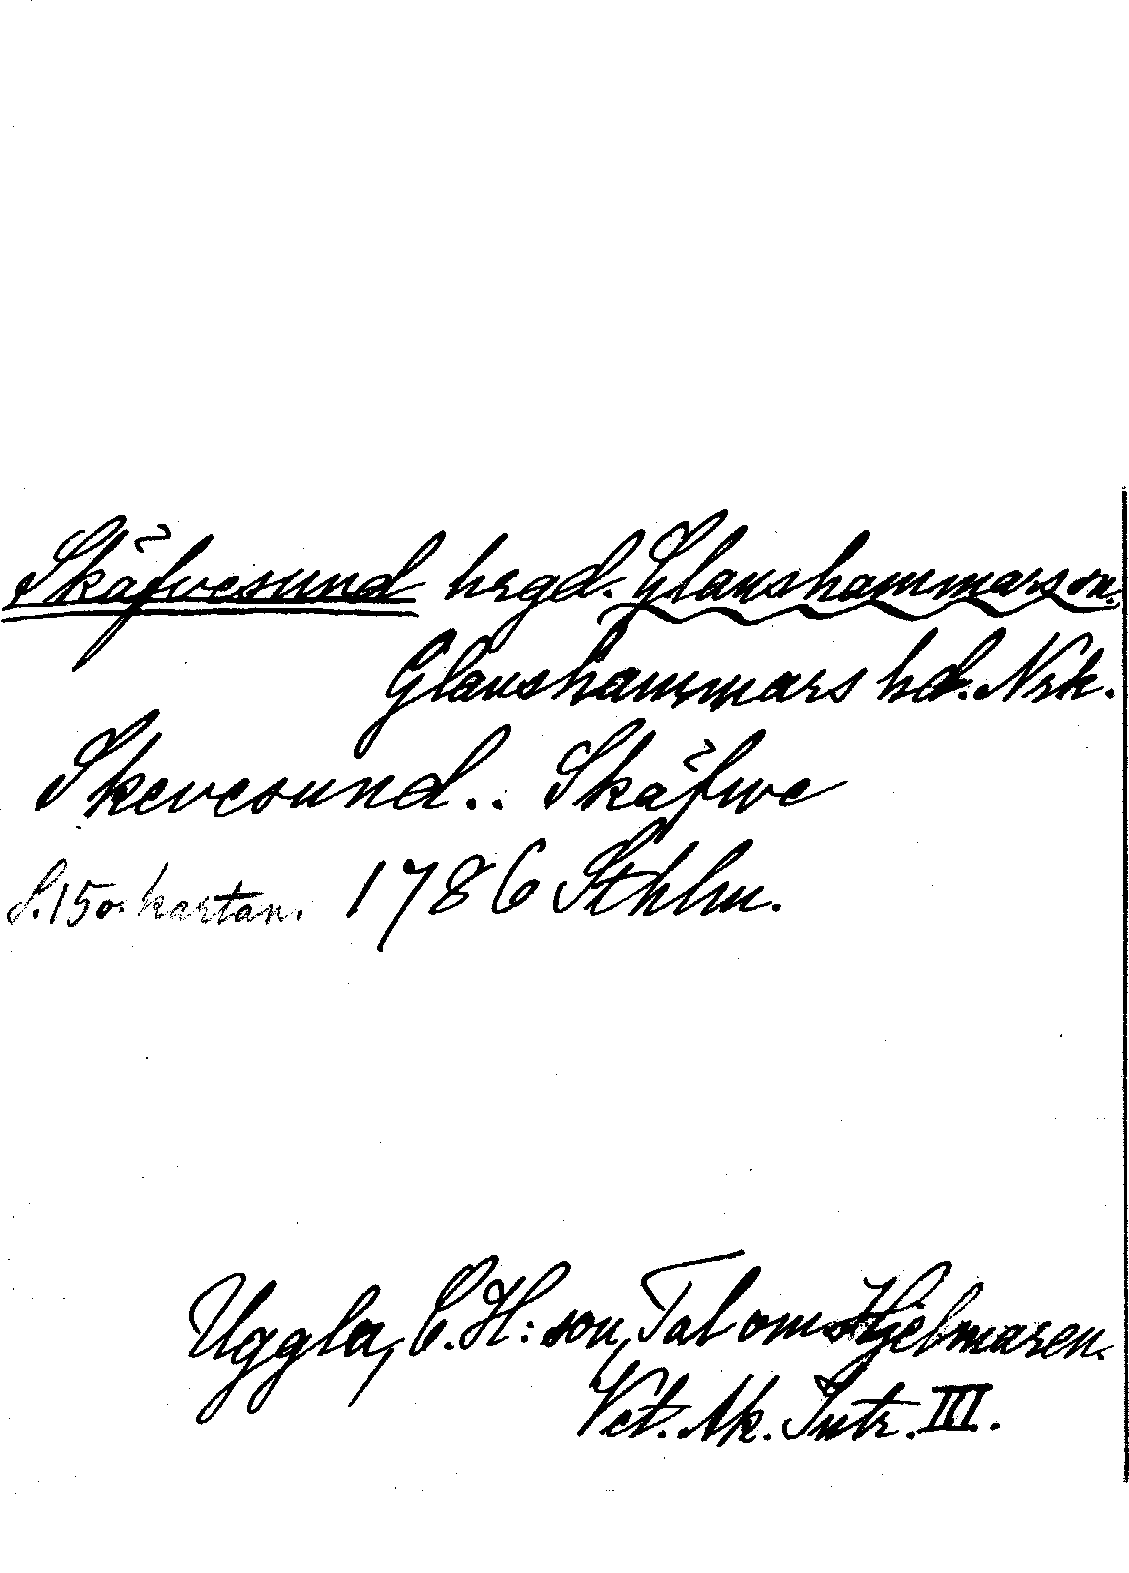 Skäfvesund hrgd. Glanshammars sn.
Glanshammars hd. Nrk.
Skevesund.. Skäfwe
S. 150. kartan. 1786 Sthlm.
Uggla, C. H:son, Tal om Hjelmaren.
Vet. Ak. Intr. III.